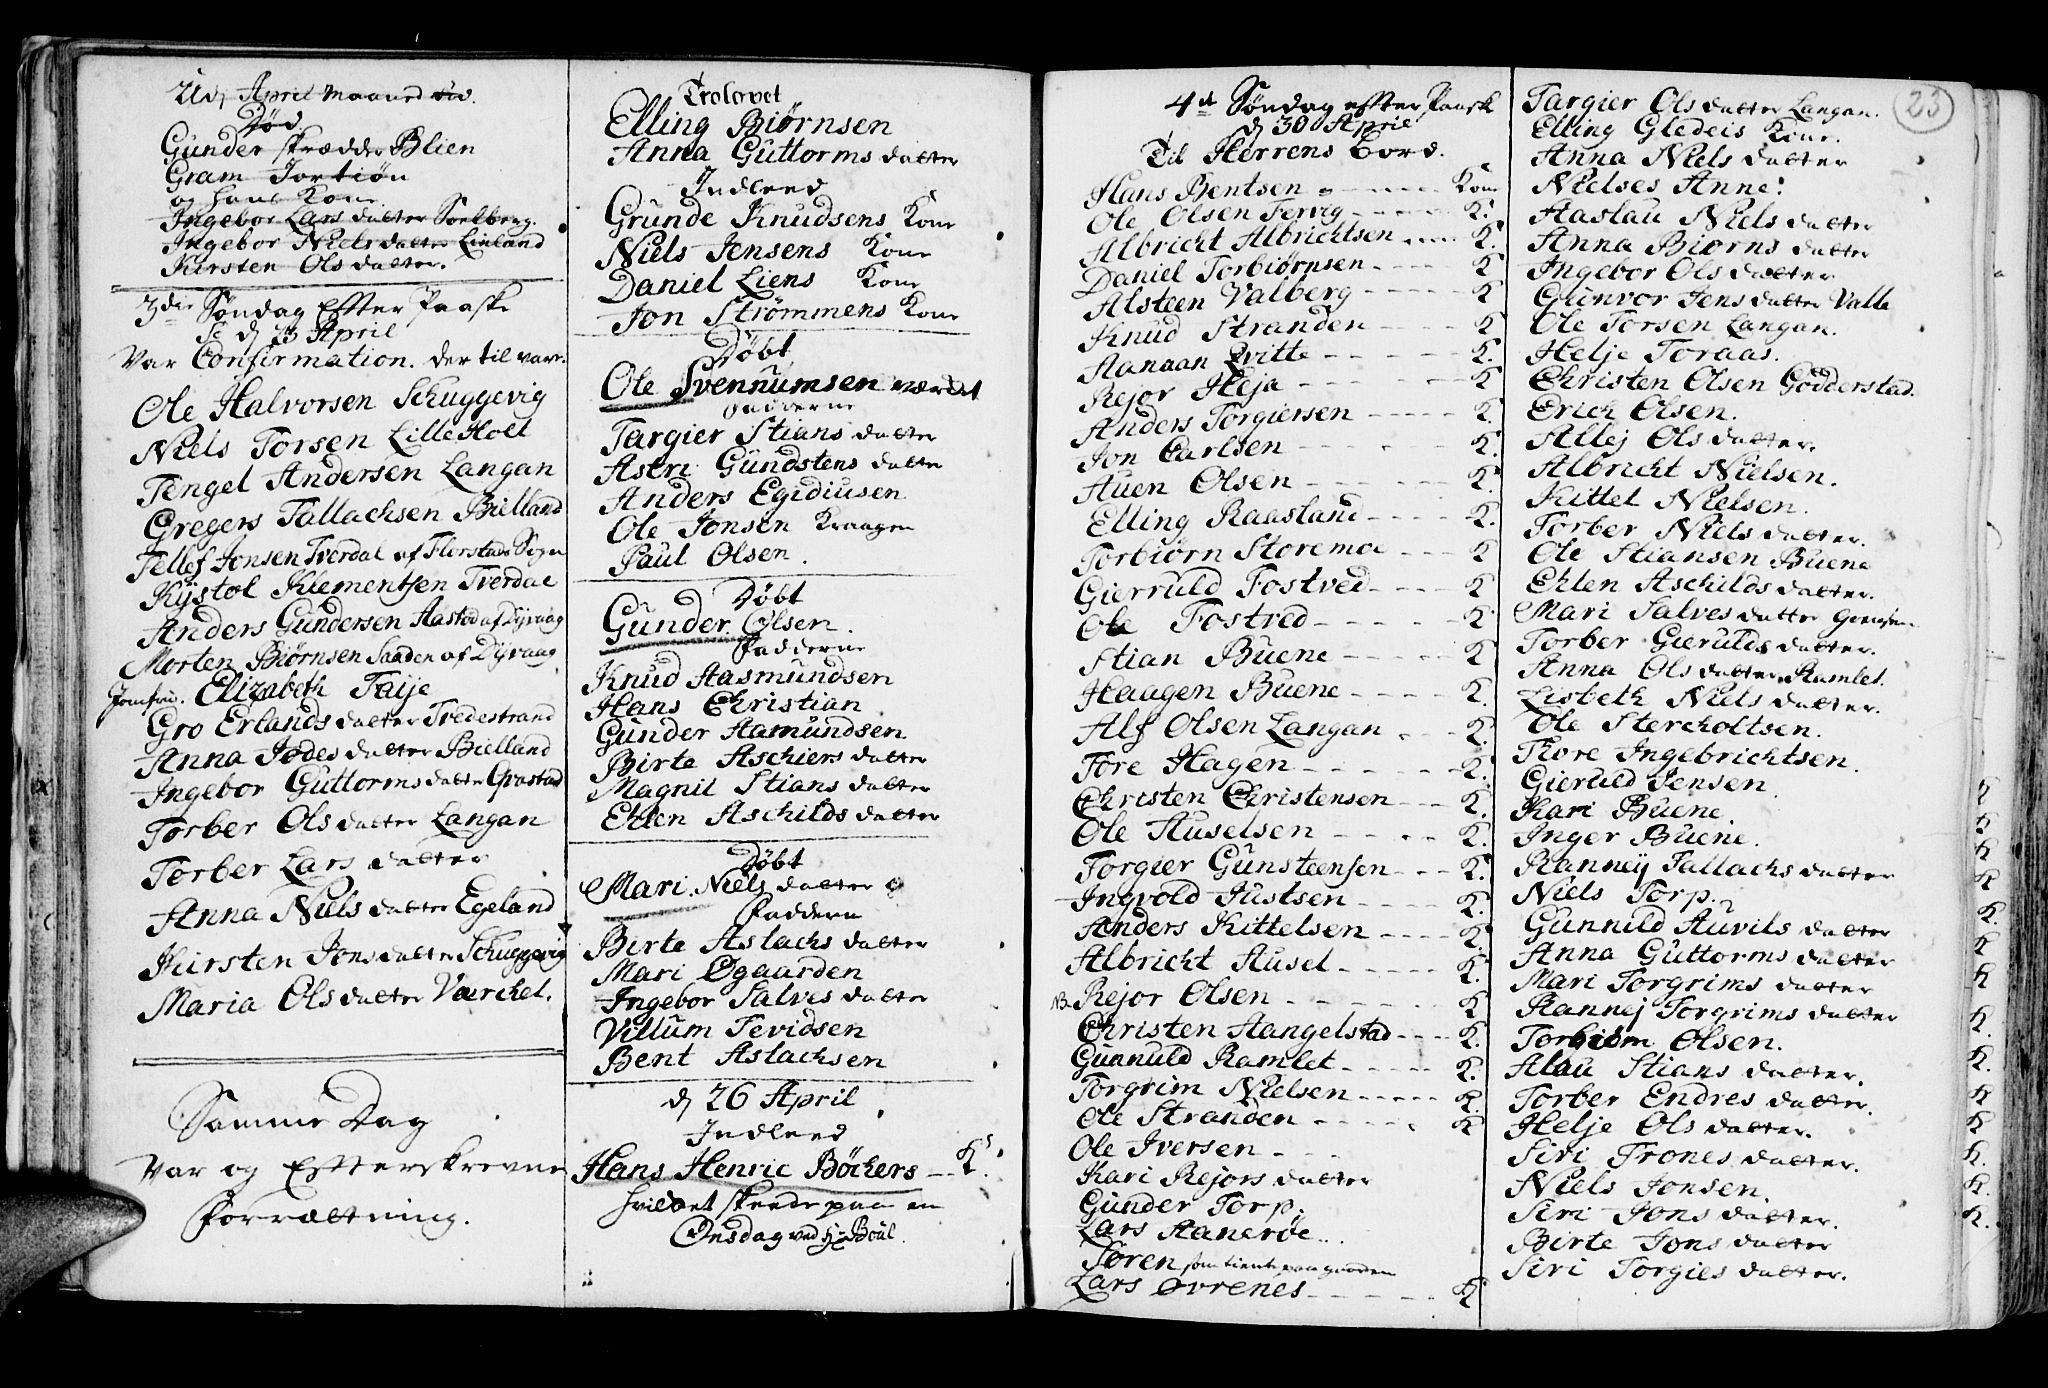 Udj April Maaned död.
Död
Gunder skrædder Blien
Gram Tortiön
og hans Kone
Ingebor Lars datter Soelberg.
Ingebor Niels datter Linland
Kirsten Ols datter.
3die Söndag Efter Paaske
d 23 April
Var Confirmation. der til vare.
Ole Halvorsen Schuggevig
Niels Torsen Lille Holt
Tengel Andersen Langan
Gregers Tallachsen Bielland
Tellef Jonsen Tverdal af Flerstads Sogn
Kystol Klementsen Tverdal
Anders Gundersen Aastød af Dyvaag
Morten Biörnsen Sanden af Dyvaag
Jomfru. Elizabeth Taije
Gro Erlands datter Tvedestrand
Anna Jodes datter Bielland
Ingebor Guttorms datter Qvastad
Torber Ols datter Langan
Torber Lars datter
Anna Niels datter Egeland
Kirsten Jons datter Schuggevig
Maria Ols datter Værchet.
Samme Dag
Var og Efterskrevne
Forrættning.
Trolovet
Elling Biörnsen
Anna Guttorms datter
Indleed
Grunde Knudsens Kone
Niels Jensens Kone
Daniel Liens Kone
Jon Strömmens Kone
Döbt
Ole Svennumsen
Fadderne
Targier Stians datter
Astri Gundstens datter
Anders Egidiusen
Ole Jonsen Kraagen
Paul Olsen.
Döbt
Gunder Olsen.
Fadderne
Knud Aasmundsen
Hans Christian
Gunder Aamundsen
Birte Aschiers datter
Magnil Stians datter
Ehlen Aschilds datter
Döbt
Mari Niels datter
Faddere
Birte Aslachs datter
Mari Øgaarden
Ingebor Salves datter
Villum Tevidsen
Bent Aslachsen
d 26 April
Indleed
Hans Henric Böckers K.
hvilket skeede paa en
Onsdag ved Hr Boul.
23
4de Söndag efter Paaske
d 30 April
Til Herrens Bord.
Hans Bentsen Kone
Ole Olsen Fervig K.
Albricht Albrichtsen K.
Daniel Torbiörnsen K
Alsteen Valberg K
Knud Stranden K
Aanaan Qvitte K.
Rejor Heja K
Anders Torgiersen K
Jon Carlsen K.
Auen Olsen K
Elling Raasland K.
Torbiörn Storemoe K
Gierruld Fostved K
Ole Fostved K
Stian Buene K
Haagen Buene K.
Alf Olsen Langan K.
Tore Hagen K.
Christen Christensen K.
Ole Auselsen K.
Torgier Gunsteensen K.
Ingvold Justsen K.
Anders Kittelsen K.
Albricht Ausel K.
NB. Rejor Olsen K
Christen Aangelstad K.
Gunnuld Ramlet K.
Torgrim Nielsen K.
Ole Stranden K
Ole Iversen
Kari Rejors datter
Gunder Torp.
Lars Aaneröe
Sören som tiente paa gaarden
Lars Ovrenes K
Targier Ols datter Langan.
Elling Gledeis Kone.
Anna Niels datter
Nielses Anne.
Aaslau Niels datter
Anna Biörns datter
Ingebor Ols datter
Gunvor Jens datter Valle
Ole Torsen Langan.
Helje Toraas.
Christen Olsen Godderstad.
Erich Olsen.
Allej Ols datter.
Albricht Nielsen.
Kittel Nielsen.
Torber Niels datter.
Ole Stiansen Buene
Ehlen Aschilds datter.
Mari Salves datter
Torber Gierulds datter.
Anna Ols datter Ramlet.
Lisbeth Niels datter.
Ole Stercholtsen.
Tore Ingebrichtsen.
Gieruld Jensen.
Kari Buene.
Inger Buene.
Ranney Tallachs datter
Niels Torp.
Gunnild Auvils datter
Anna Guttorms datter
Mari Torgrims datter
Rannej Torgrims datter
Torbiörn Olsen.
Alau Stians datter.
Torber Endres datter.
Helje Ols datter.
Siri Trones datter.
Niels Jonsen.
Siri Jons datter.
Birte Jons datter
Siri Torgies datter.
K
K
K
K
K.
K
K
K.
K.
K
K
K.
K.
K.